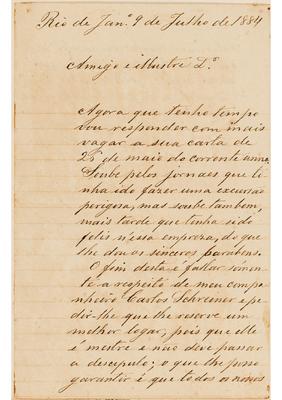 Rio de Jan.º 9 de Julho de 1884
Amigo e illustre D.º
Agora que tenho tempo
vou responder com mais
vagar a sua carta de
25 de maio do corrente anno.
Soube pelos jornaes que ti-
nha ido fazer uma excursao
perigosa, mas soube tambem,
mais tarde que tenha sido
felis n'essa empreza, do que
lhe dou os sinceros parabens.
O fim desta é fallar sómen-
te a respeito de meu compa-
nheiro Carlos Schreiner e pe-
dir-lhe que lhe reserve um
melhor logar, pois que elle
é mestre e não deve passar
a descipulo; o que lhe posso
garantir é que todos os novos